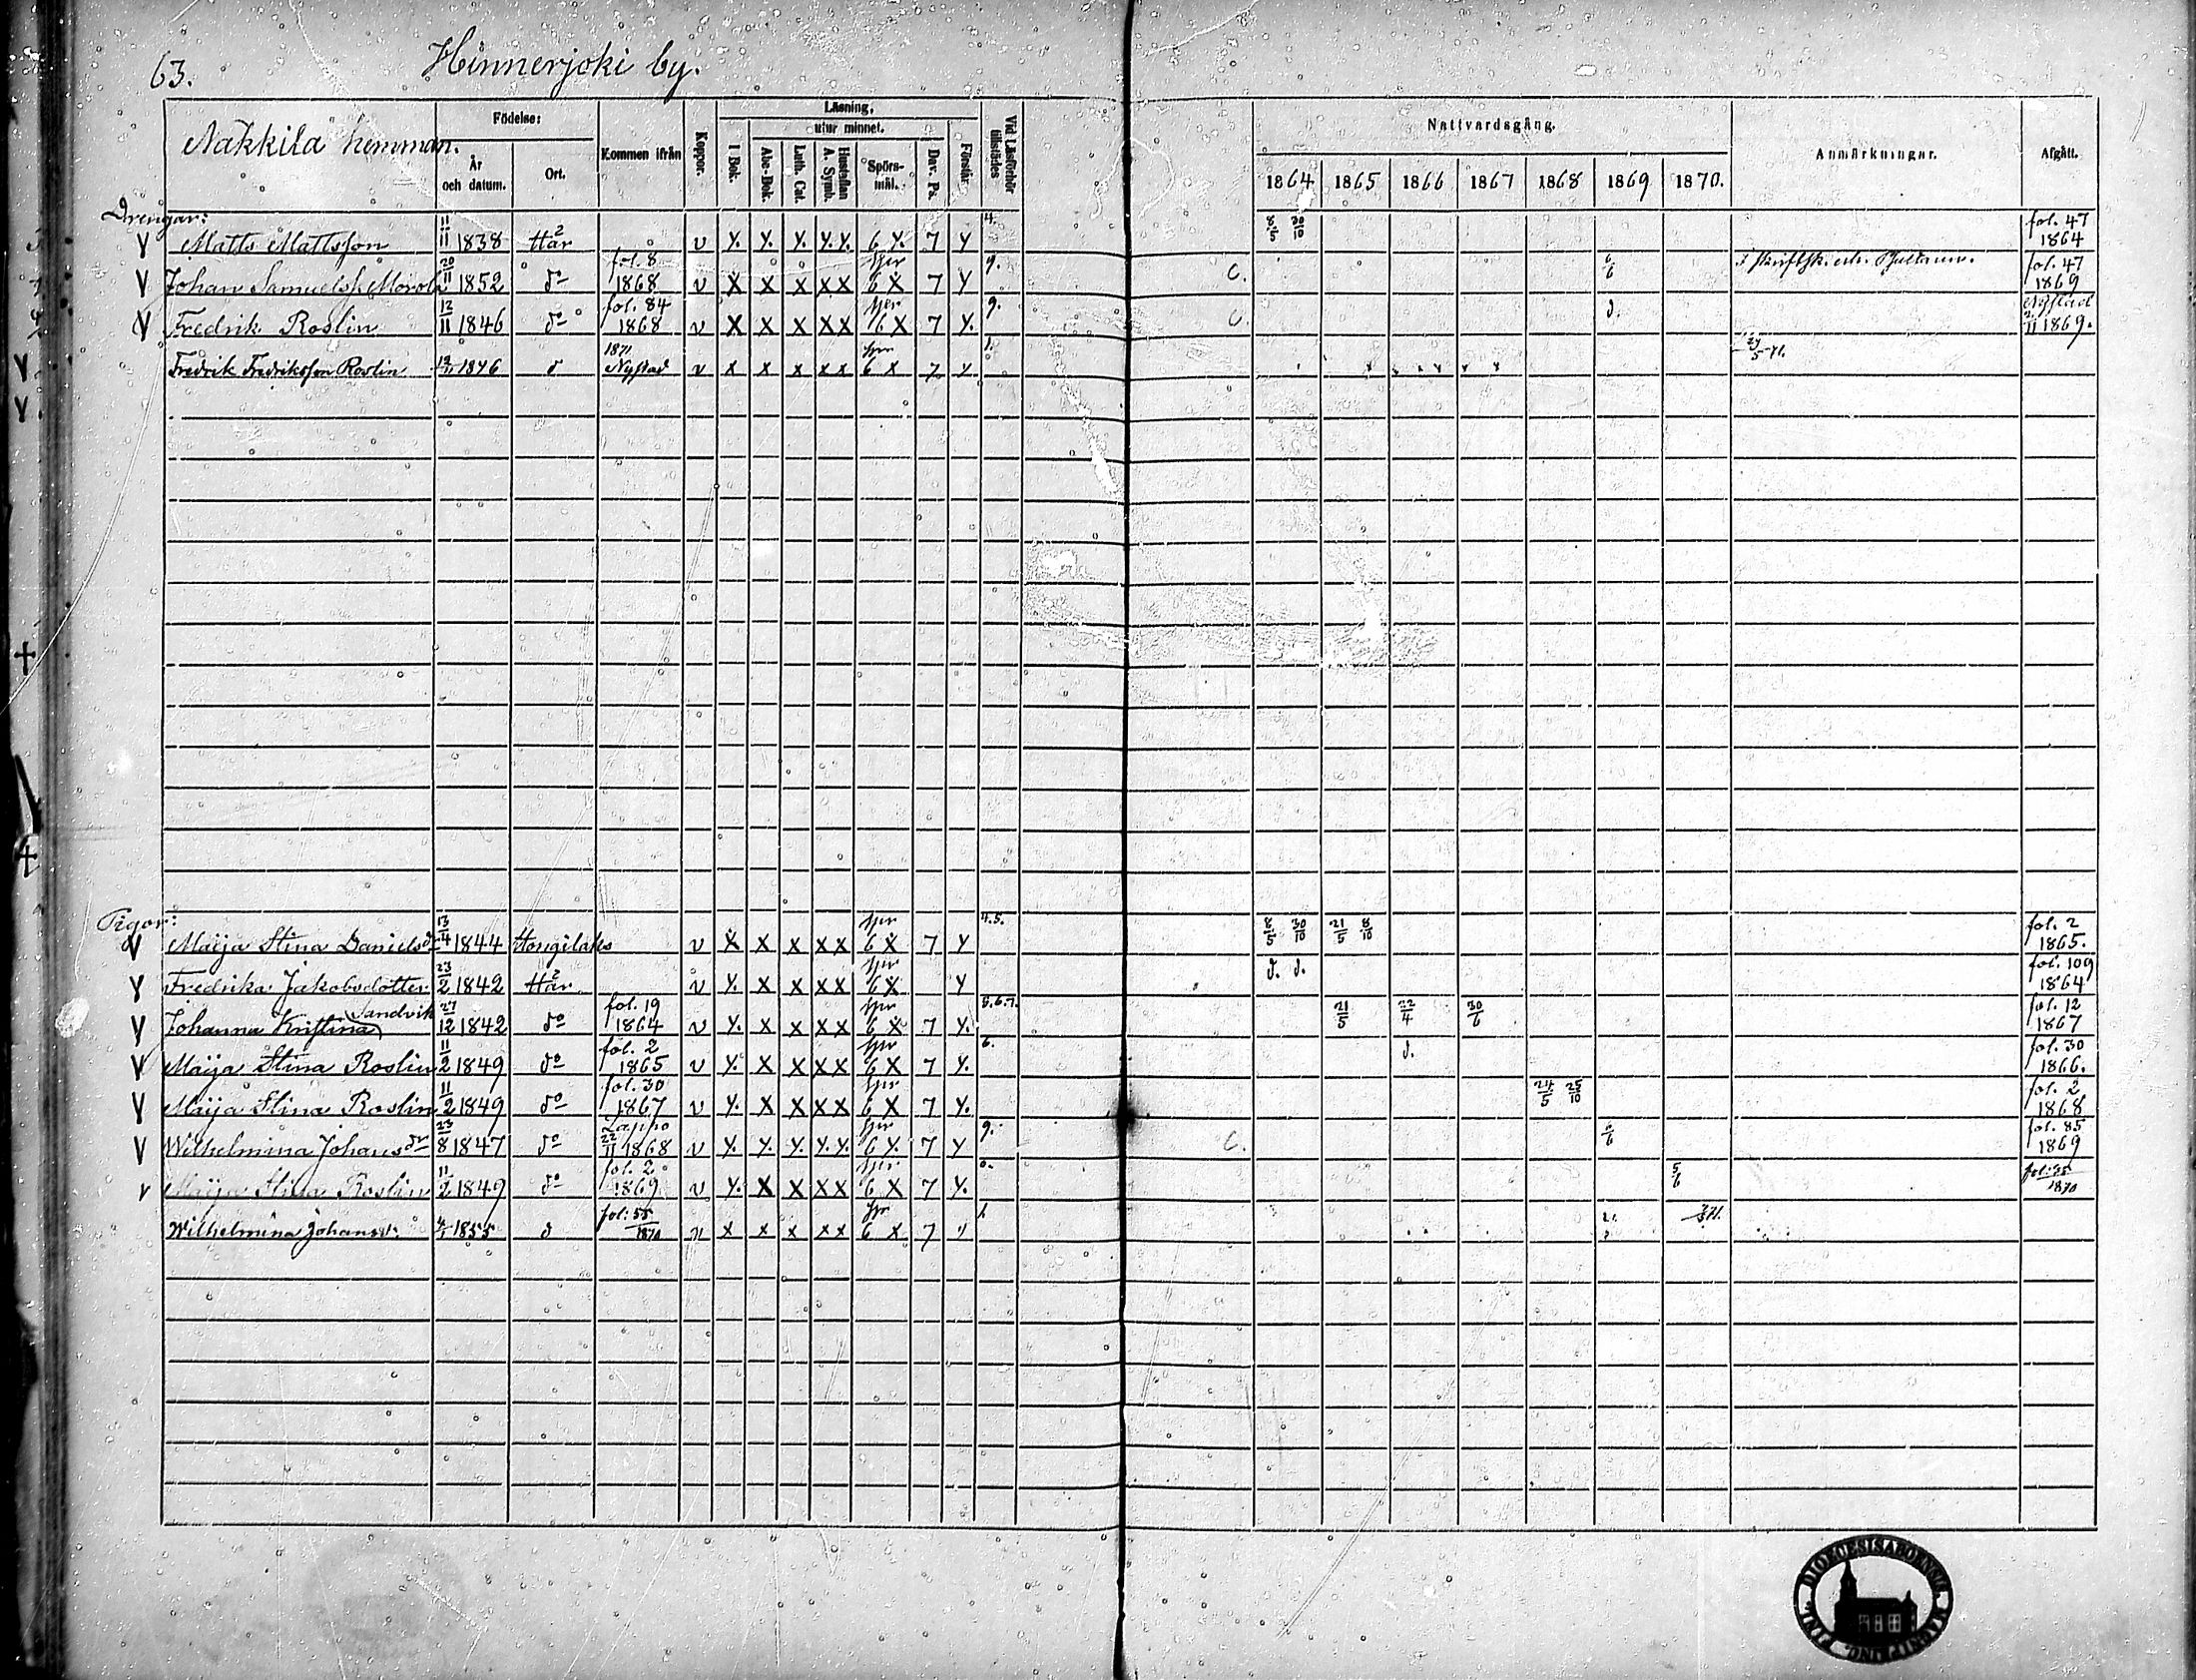 63.
Hinnerjoki by.
Nakkila hemman.
Födelse:
År och datum.
Ort.
Kommen ifrån
Koppor.
Läsning,
utur minnet.
I Bok.
Abc-Bok.
Luth. Cat.
Hustaflan A. Symb.
Spörs-mål.
Dav. Ps.
Förstår
Vid Läsförhör tillstädes
Nattvardsgång.
1864 1865 1866 1867 1868 1869 1870.
Anmärkningar.
Afgått.
Drengar:
V Matts Mattsson 11/11 1838 Här v Y. Y. Y. Y. Y. 6 Y. 7 Y 4. 8/5 30/10 fol. 47 1864
V Johan Samuelss. 20/11 1852 do fol. 8 1868 v X X X X X 6 X 7 Y 9. C. 6/6 fol. 47 1869
V Fredrik Roslin 12/11 1846 do fol. 84 1868 v X X X X X 6 X 7 Y. 9. C. d. Nystad 11 1869.
Fredrik Fredriksson Roslin 12/11 1846 d 1871 Nystad v x x x x x 6 x 7 y 1.
Pigor:
V Maija Stina Danielsdr 4 1844 Hongilaks v X X X X X 6 X 7 Y 4.5. 8/5 30/10 21/5 8/10 fol. 2 1865.
V Fredrika Jakobsdotter 23/2 1842 Här v Y. X X X X 6 X Y d. d. fol. 109 1864
V Johanna Kristina Sandvik 27/12 1842 do fol. 19 1864 v Y. X X X X 6 X 7 Y. 5.6.7. 21/5 22/4 30/6 fol. 12 1867
V Maija Stina Roslin 11/2 1849 do fol. 2 1865 v Y. X X X X 6 X 7 Y. 6. d. fol. 30 1866.
V Maija Stina Roslin 11/2 1849 do fol. 30 1867 v Y. X X X X 6 X 7 Y. 24/5 25/10 fol. 2 1868
V Wilhelmina Johansdr 23/8 1847 do Lappo 22/11 1868 v Y. Y. Y. Y. Y. 6 Y. 7 Y 9. C. 6/6 fol. 85 1869
v Maija Stina Roslin 11/2 1849 do fol. 2 1869 v Y. X X X X 6 X 7 Y. 0. 5/6 1870
Wilhelmina Johansdr. 1855 d fol: 55 1870 v x x x x x 6 x 7
DIOECESIS ABOENSIS